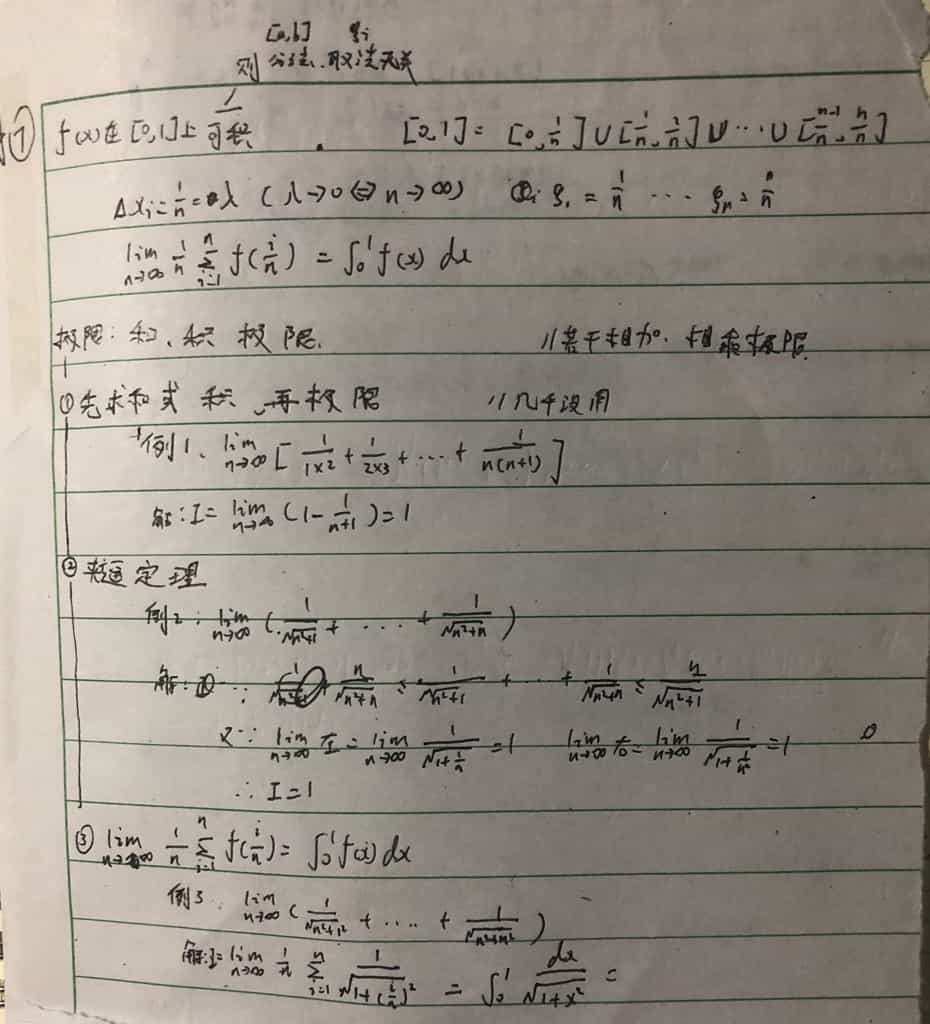 [a,b] ξi
则 分法、取法无关
⑦ f(x)在[0,1]上可积 . [0,1] = [0, 1/n] ∪ [1/n, 2/n] ∪ … ∪ [n-1/n, n/n]
Δxi = 1/n = λ (λ→0 ⇔ n→∞) ξ1 = 1/n … ξn = n/n
lim n→∞ 1/n Σ i=1 n f(i/n) = ∫0 1 f(x) dx
极限: 和、积 极限. //若干相加、相乘极限
① 先求和式 积、再极限 //几乎没用
例1、lim n→∞ [ 1/1×2 + 1/2×3 + … + 1/n(n+1) ]
解: I = lim n→∞ (1 - 1/n+1) = 1
② 夹逼定理
例2: lim n→∞ ( 1/√n²+1 + … + 1/√n²+n )
解: ∵ n/√n²+n ≤ 1/√n²+1 + … + 1/√n²+n ≤ n/√n²+1
又∵ lim n→∞ 左 = lim n→∞ 1/√1+1/n = 1 lim n→∞ 右 = lim n→∞ 1/√1+1/n² = 1
∴ I = 1
③ lim n→∞ 1/n Σ i=1 n f(i/n) = ∫0 1 f(x) dx
例3. lim n→∞ ( 1/√n²+1² + … + 1/√n²+n² )
解: I = lim n→∞ 1/n Σ i=1 n 1/√1+(i/n)² = ∫0 1 dx/√1+x² =